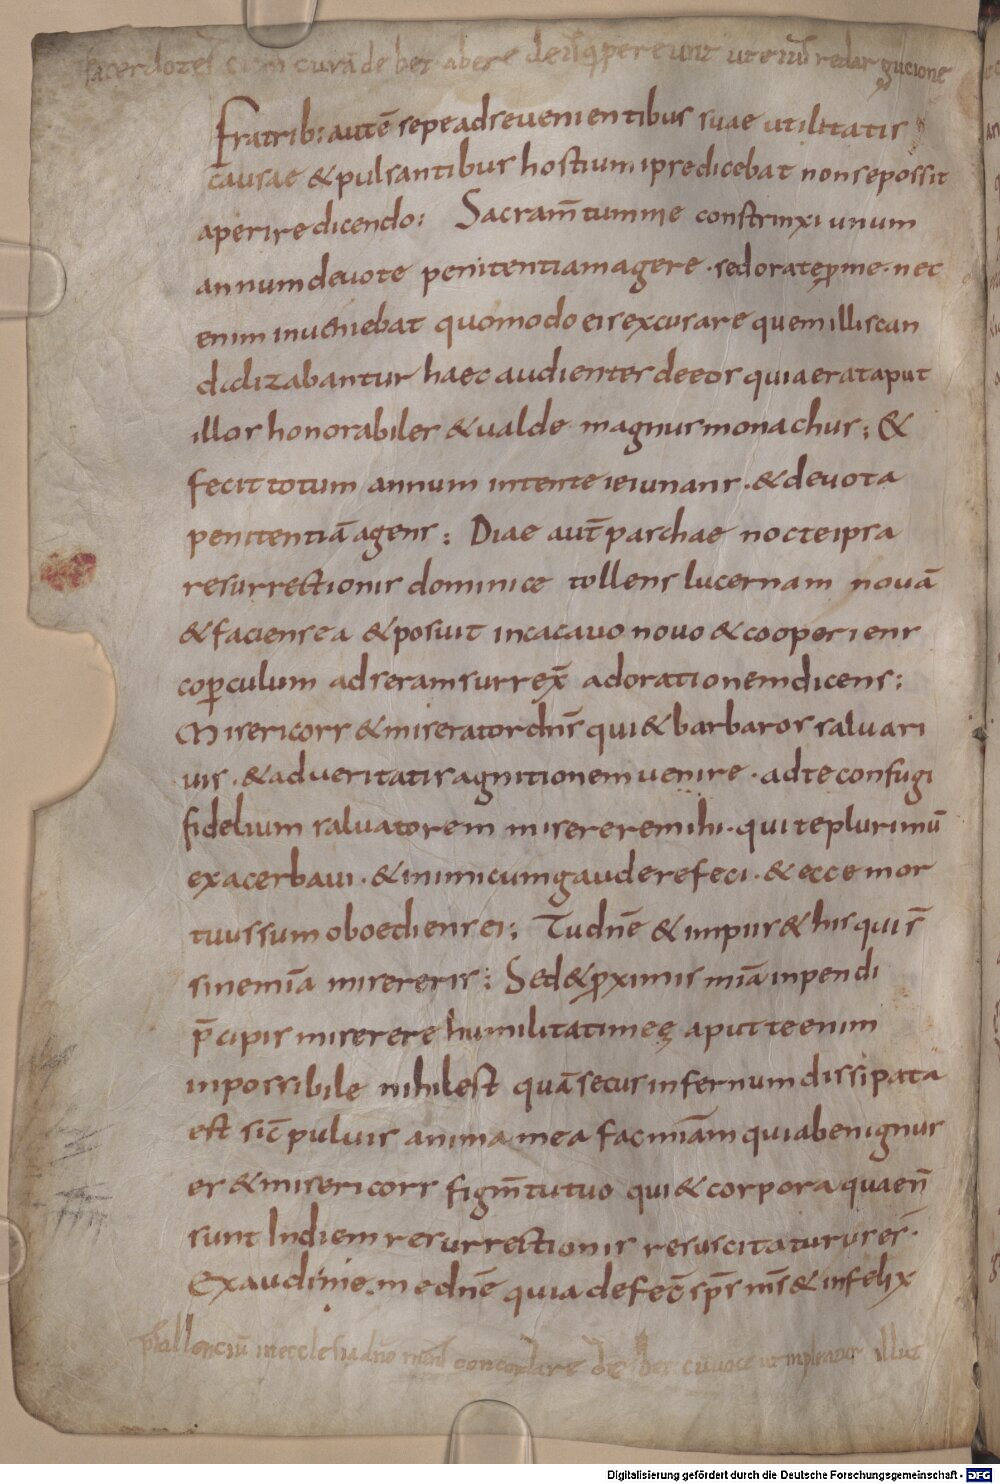 sacerdotes cum curā debet abere de his q pereunt ut eius redargucione
Fratrib: autē sepe ad se venientibus suae utilitatis
causae & pulsantibus hostium ipse dicebat non se possit
aperire dicendo: Sacram̄tum me constrinxi unum
annum devote penitentiam agere · sed orate p̱ me · nec
enim inveniebat quomodo eis excusare quem illi scan
dalizabantur haec audientes de eos quia erat aput
illos honorabiles & valde magnus monachus; &
fecit totum annum intente ieiunans · & devota
penitentiā agens; Diae aut̄ paschae nocte ipsa
resurrectionis dominice tollens lucernam novā
& faciens ea & posuit in cacavo novo & cooperiens
cop̱culum ad seram surrex̄ ad orationem dicens:
Misericors & miserator dn̄s qui & barbaros salvari
vis · & ad veritatis agnitionem venire · ad te confugi
fidelium salvatorem miserere mihi · qui te plurimū
exacerbavi · & inimicum gaudere feci · & ecce mor
tuus sum oboediens ei; Tu dn̄e & impiis & his qui s̄
sine mīa misereris; Sed & p̱ximis mīa inpendi
p̄cipis miserere humilitati meę aput te enim
inpossibile nihil est quā secus infernum dissipata
est sic̄ pulvis anima mea fac mīam quia benignus
es & misericors figm̄tu tuo qui & corpora quae n̄
sunt In diem resurrectionis resuscitaturus es·
Exaudi me dn̄e quia defec̄ sp̄s m̄s & infelix
psallenciū in ecclesia dn̄o mens concordare debet cū voce ut impleatur illut
Digitalisierung gefördert durch die Deutsche Forschungsgemeinschaft - DFG